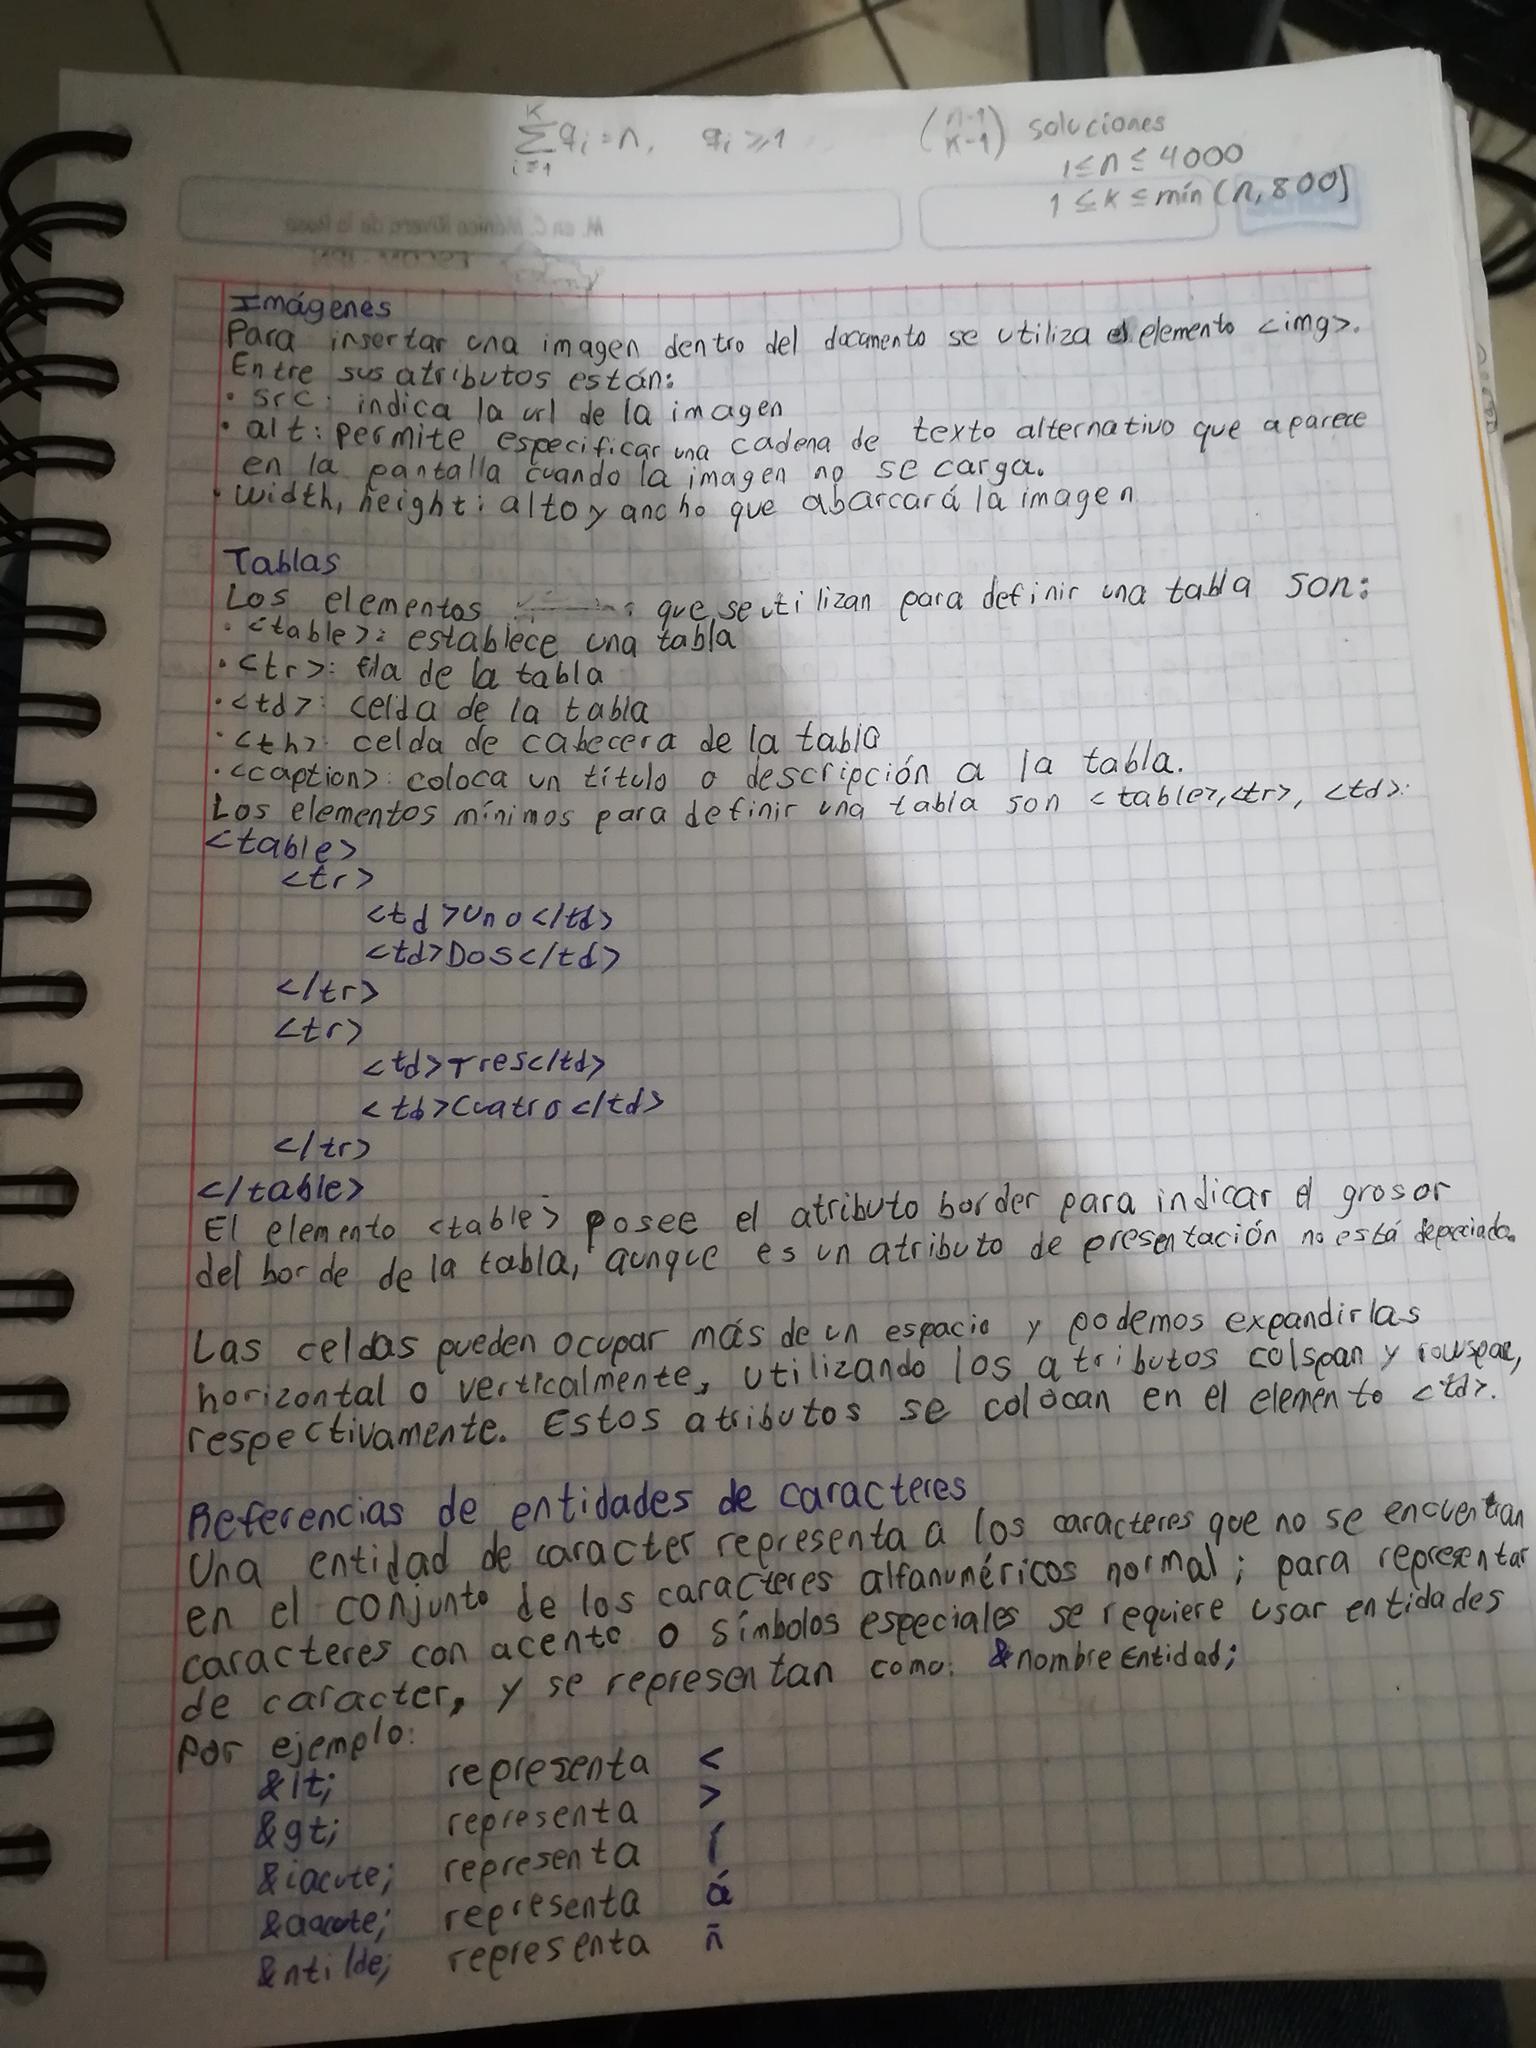 K
∑ qi = n, qi ≥ 1
i=1
(n-1
K-1) soluciones
1 ≤ n ≤ 4000
1 ≤ K ≤ min(n, 800)
M. en C. Mónica Rivera de la Rosa
ESCOM - IPN
Imágenes
Para insertar una imagen dentro del documento se utiliza el elemento <img>.
Entre sus atributos están:
• src: indica la url de la imagen
• alt: permite especificar una cadena de texto alternativo que aparece
en la pantalla cuando la imagen no se carga.
• width, height: alto y ancho que abarcará la imagen
Tablas
Los elementos que se utilizan para definir una tabla son:
• <table>: establece una tabla
• <tr>: fila de la tabla
• <td>: celda de la tabla
• <th>: celda de cabecera de la tabla
• <caption>: coloca un título o descripción a la tabla.
Los elementos mínimos para definir una tabla son <table>, <tr>, <td>.
<table>
<tr>
<td>Uno</td>
<td>Dos</td>
</tr>
<tr>
<td>Tres</td>
<td>Cuatro</td>
</tr>
</table>
El elemento <table> posee el atributo border para indicar el grosor
del borde de la tabla, aunque es un atributo de presentación no está depreciado.
Las celdas pueden ocupar más de un espacio y podemos expandirlas
horizontal o verticalmente, utilizando los atributos colspan y rowspan,
respectivamente. Estos atributos se colocan en el elemento <td>.
Referencias de entidades de caracteres
Una entidad de caracter representa a los caracteres que no se encuentran
en el conjunto de los caracteres alfanuméricos normal; para representar
caracteres con acento o símbolos especiales se requiere usar entidades
de caracter, y se representan como: &nombreEntidad;
Por ejemplo:
&lt; representa <
&gt; representa >
&iacute; representa í
&aacute; representa á
&ntilde; representa ñ